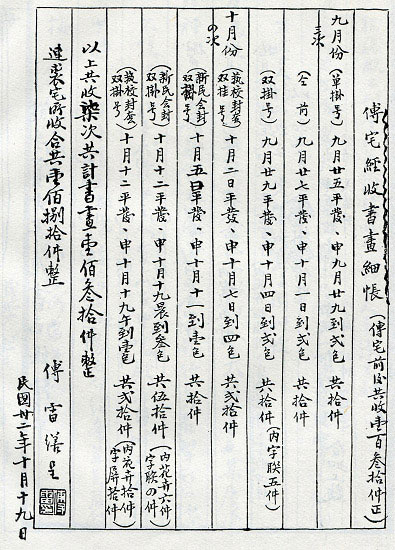 傅宅經收書畫細帳(傅宅前後共收壹百叁拾件正)
九月份
三次
(單掛号)九月廿五平發、申九月廿九到弍色 共弍拾件
(仝前)九月廿七平發、申十月一日到弍色 共拾件
(双掛号)九月廿九平發、申十月四日到弍色 共拾件(內字聯五件)
十月份
の次
(藝校封套双挂号)十月二日平發、申十月七日到四色 共弍拾件
(新民会封双掛号)十月五日平發、申十月十一到壹色 共拾件
(新民会封双掛号)十月十二平發、申十月十九晨到叁色 共伍拾件(內花卉六件字聯の件)
(藝校封套双掛号)十月十二平發、申十月十九午到壹色 共弍拾件(內花卉拾件字屏拾件)
以上共收柒次共計書畫壹佰叁拾件整
連裘宅所收合共壹佰捌拾件整
傅雷繕呈
民國卅二年十月十九日